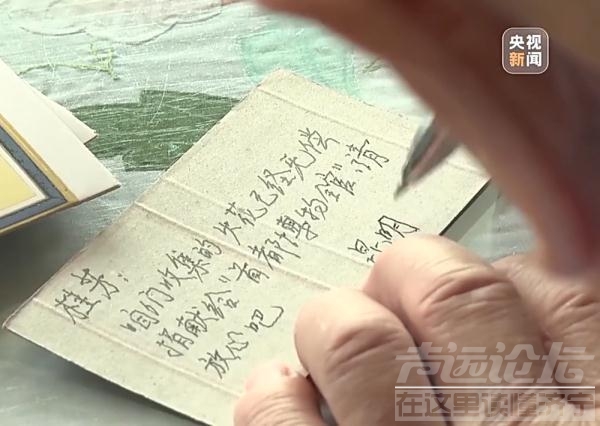 央视
新闻
桂芳：
咱们收集的火花已经无偿
捐献给"首都博物馆"请
放心吧
明
声远论坛
在这里读懂济宁